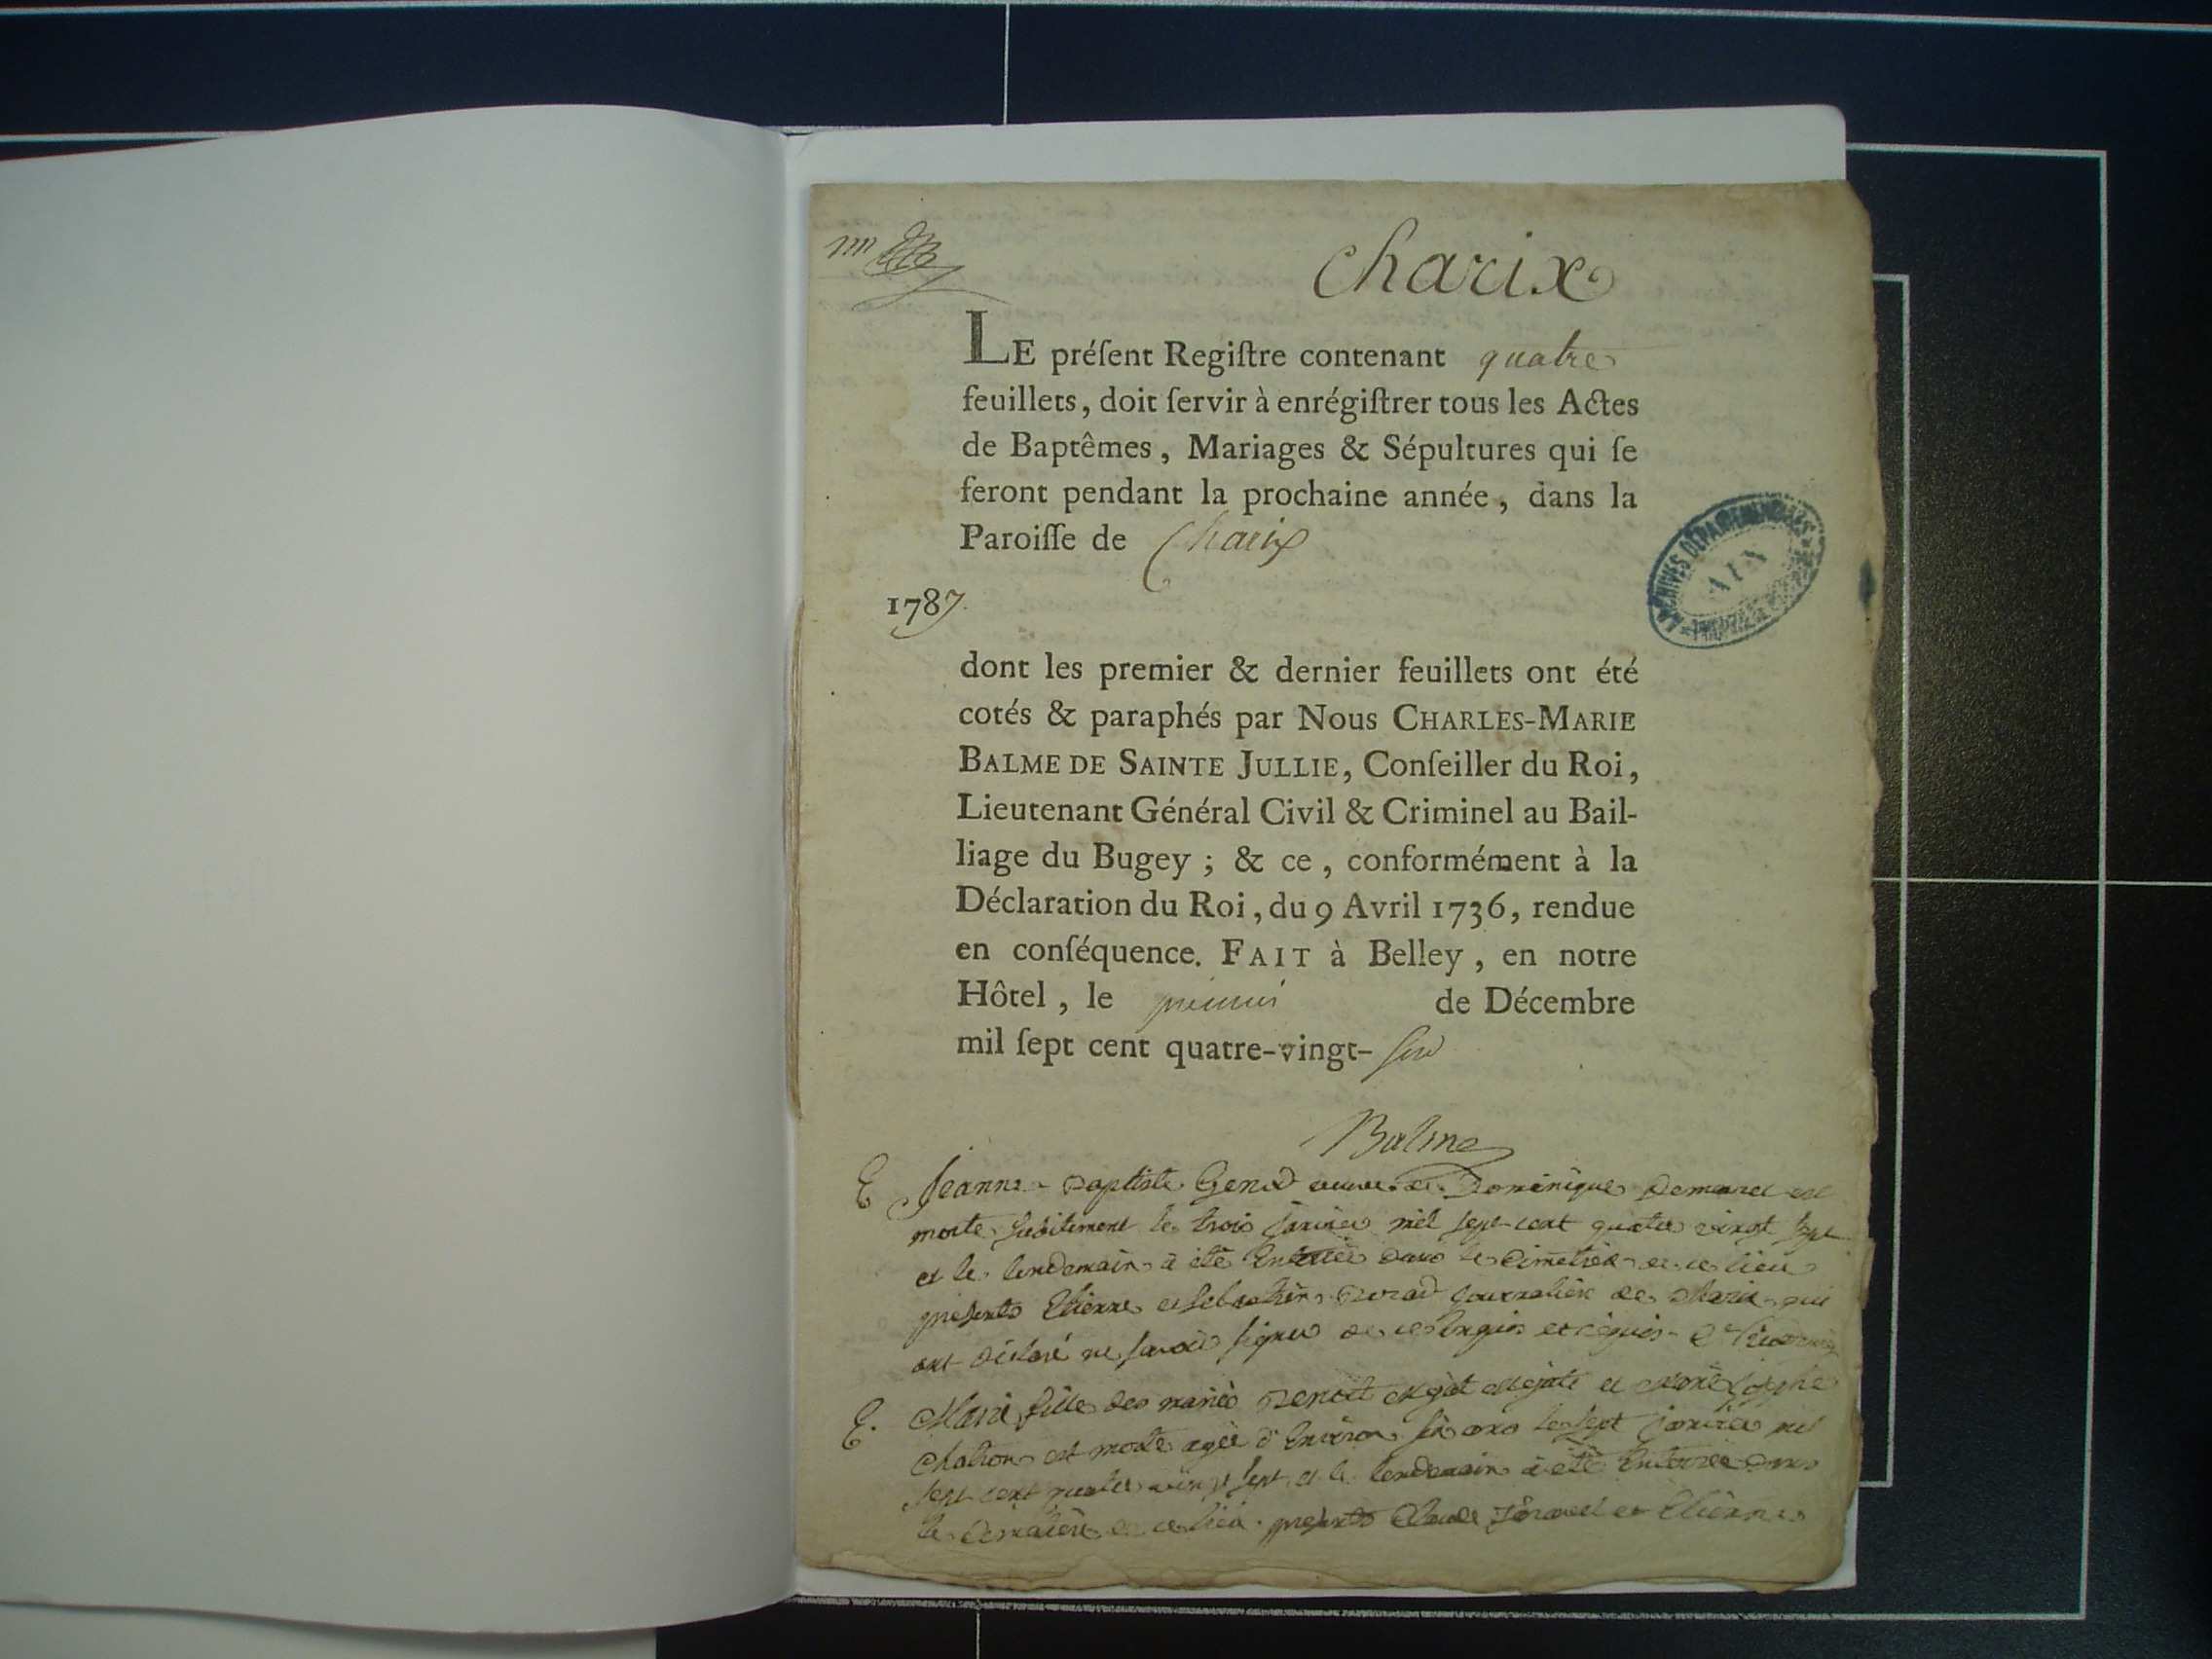 Charix
LE préſent Regiſtre contenant quatre
feuillets, doit ſervir à enrégiſtrer tous les Actes
de Baptêmes, Mariages & Sépultures qui ſe
feront pendant la prochaine année, dans la
Paroiſſe de Charix
ARCHIVES DÉPARTEMENTALES
AIN
1787.
dont les premier & dernier feuillets ont été
cotés & paraphés par Nous CHARLES-MARIE
BALME DE SAINTE JULLIE, Conſeiller du Roi,
Lieutenant Général Civil & Criminel au Bail-
liage du Bugey ; & ce, conformément à la
Déclaration du Roi, du 9 Avril 1736, rendue
en conſéquence. FAIT à Belley, en notre
Hôtel, le premier de Décembre
mil ſept cent quatre-vingt-six
Balme
E Jeanne Baptiste Genod veuve de Dominique est
morte subitement le trois janvier mil sept cent quatre vingt sept
et le lendemain a été enterrée dans le cimetière de ce lieu
présents Etienne et Sebastien journalier de qui
ont déclaré ne savoir signer de ce enquis et requis
E. Marie fille des mariés Benoit et
est morte agée d'environ six ans le sept janvier mil
sept cent quatre vingt sept et le lendemain a été enterrée dans
le cimetière de ce lieu. présents Claude et Etienne